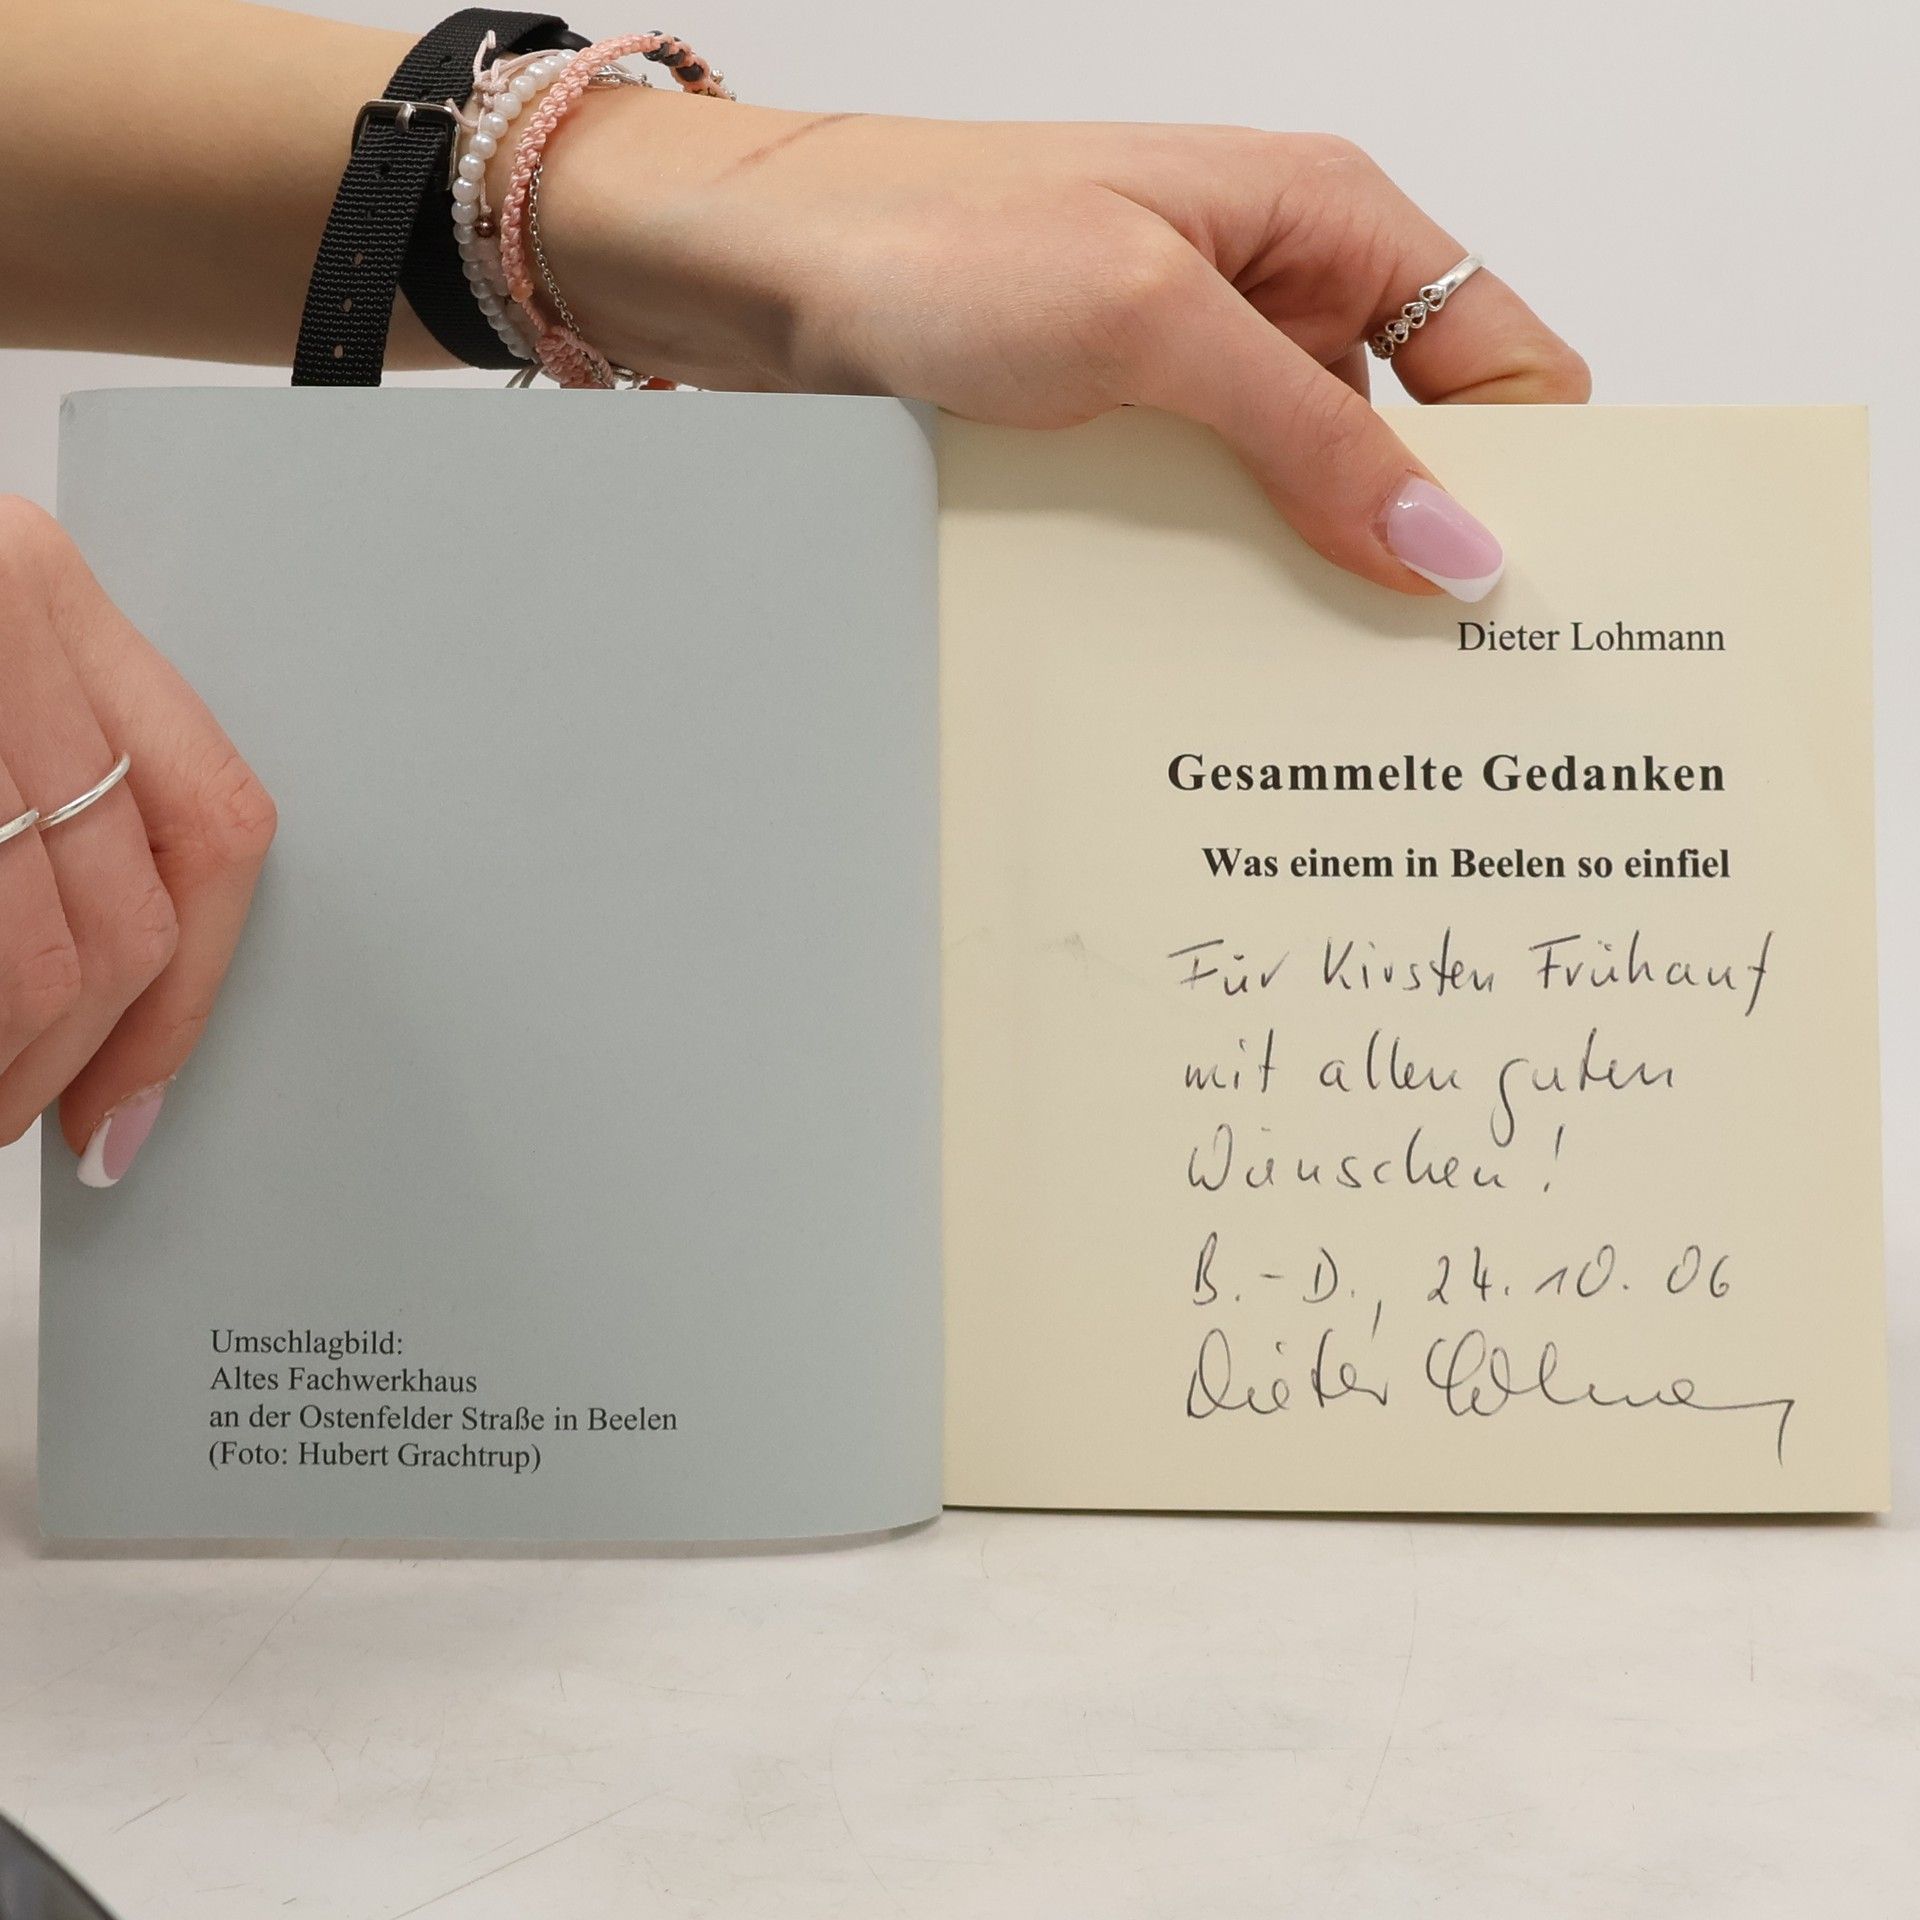 Umschlagbild:
Altes Fachwerkhaus
an der Ostenfelder Straße in Beelen
(Foto: Hubert Grachtrup)
Dieter Lohmann
Gesammelte Gedanken
Was einem in Beelen so einfiel
Für Kirsten Frühauf
mit allen guten
Wünschen!
B.-D., 24.10.06
Dieter Lohmann